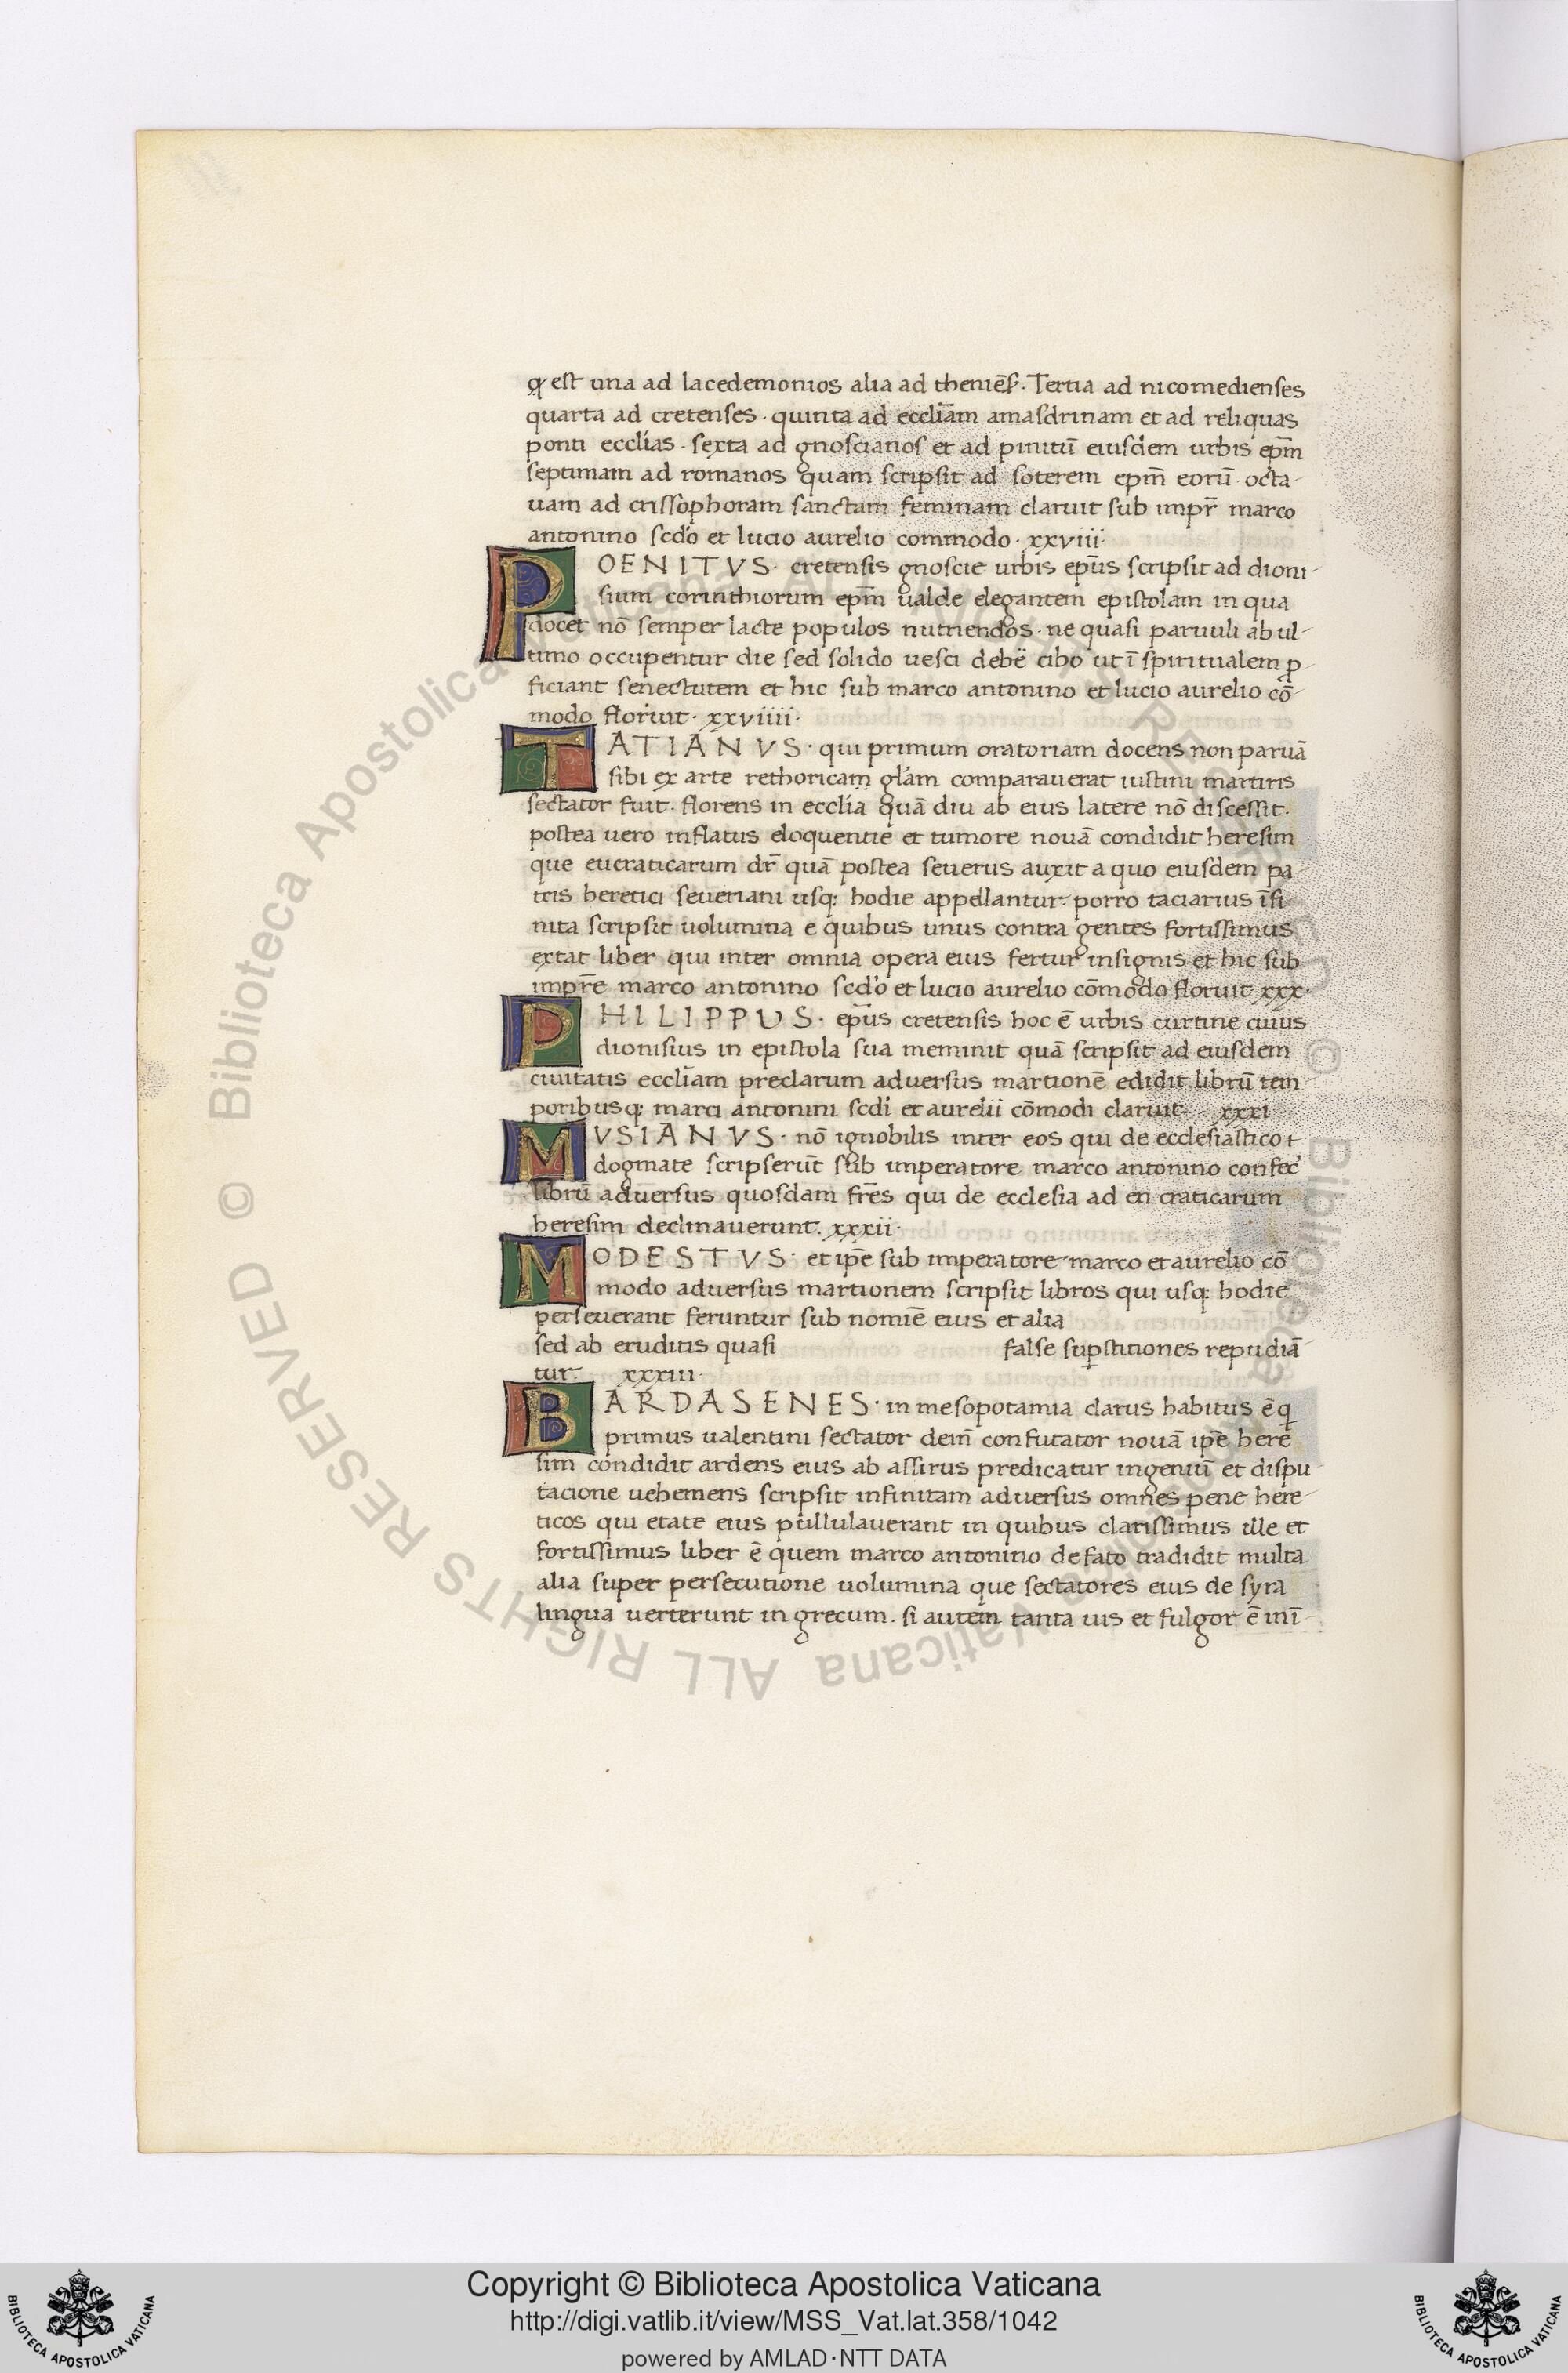 qꝝ est una ad lacedemonios alia ad theniẽſ. Tertia ad nicomedienses
quarta ad cretenses · quinta ad eccliãm amasdrinam et ad reliquas
ponti ecclías · sexta ad gnoscianos et ad pinitũ eiusdem urbis ep̃m
septimam ad romanos quam scripsit ad soterem ep̃m eorũ · octa-
uam ad crissophoram sanctam feminam claruit sub impr̃ marco
antonino scdó et lucio aurelio commodo · xxviii·
POENITVS · cretensis gnoscie urbis ep̃us scripsit ad dioni-
sium corinthiorum ep̃m ualde elegantem epistolam in qua
docet nõ semper lacte populos nutriendos · ne quasi paruuli ab ul-
timo occupentur die sed solido uesci debẽ cibo ut ĩ spiritualem ꝓ-
ficiant senectutem et hic sub marco antonino et lucio aurelio cõ-
modo floruit · xxviiii·
TATIANVS · qui primum oratoriam docens non paruã
sibi ex arte rethoricam glám comparauerat iustini martiris
sectator fuit · florens in ecclía quã diu ab eius latere nõ discessit·
postea uero inflatus eloquentie et tumore nouã condidit heresim
que eucraticarum dr̃ quã postea seuerus auxit a quo eiusdem pa-
tris heretici seueriani usq; hodie appellantur· porro taciarius ĩfi-
nita scripsit uolumina e quibus unus contra gentes fortissimus
extat liber qui inter omnia opera eius fertur insignis et hic sub
impr̃e marco antonino scdó et lucio aurelio cõmodo floruit xxx·
PHILIPPUS · ep̃us cretensis hoc ẽ urbis curtine cuius
dionisius in epistola sua meminit quã scripsit ad eiusdem
ciuitatis eccliãm preclarum aduersus martionẽ edidit librũ tem
poribusq; marci antonini scdí et aurelii cõmodi claruit· xxxi
MVSIANVS · nõ ignobilis inter eos qui de ecclesiastico
dogmate scripserũt sub imperatore marco antonino confec̉
librũ aduersus quosdam fr̃es qui de ecclesia ad en craticarum
heresim declinauerunt. xxxii·
MODESTVS · et ip̃e sub imperatore marco et aurelio cõ
modo aduersus martionem scripsit libros qui usq; hodie
perseuerant feruntur sub nomiẽ eius et alia
sed ab eruditis quasi false suꝑstitiones repudiã-
tur· xxxiii·
BARDASENES · in mesopotamia clarus habitus ẽ q
primus ualentini sectator deiñ confutator nouã ip̃e here
sim condidit ardens eius ab assirus predicatur ingeniũ et dispu
tacione uehemens scripsit infinitam aduersus omnes pene here-
ticos qui etate eius pullulauerant in quibus clarissimus ille et
fortissimus liber ẽ quem marco antonino de fato tradidit multa
alia super persecutione uolumina que sectatores eius de syra
lingua uerterunt in grecum. si autem tanta uis et fulgor ẽ inĩ-
© Biblioteca Apostolica Vaticana ALL RIGHTS RESERVED © Biblioteca Apostolica Vaticana ALL RIGHTS RESERVED
Copyright © Biblioteca Apostolica Vaticana
http://digi.vatlib.it/view/MSS_Vat.lat.358/1042
powered by AMLAD·NTT DATA
BIBLIOTECA APOSTOLICA VATICANA
BIBLIOTECA APOSTOLICA VATICANA